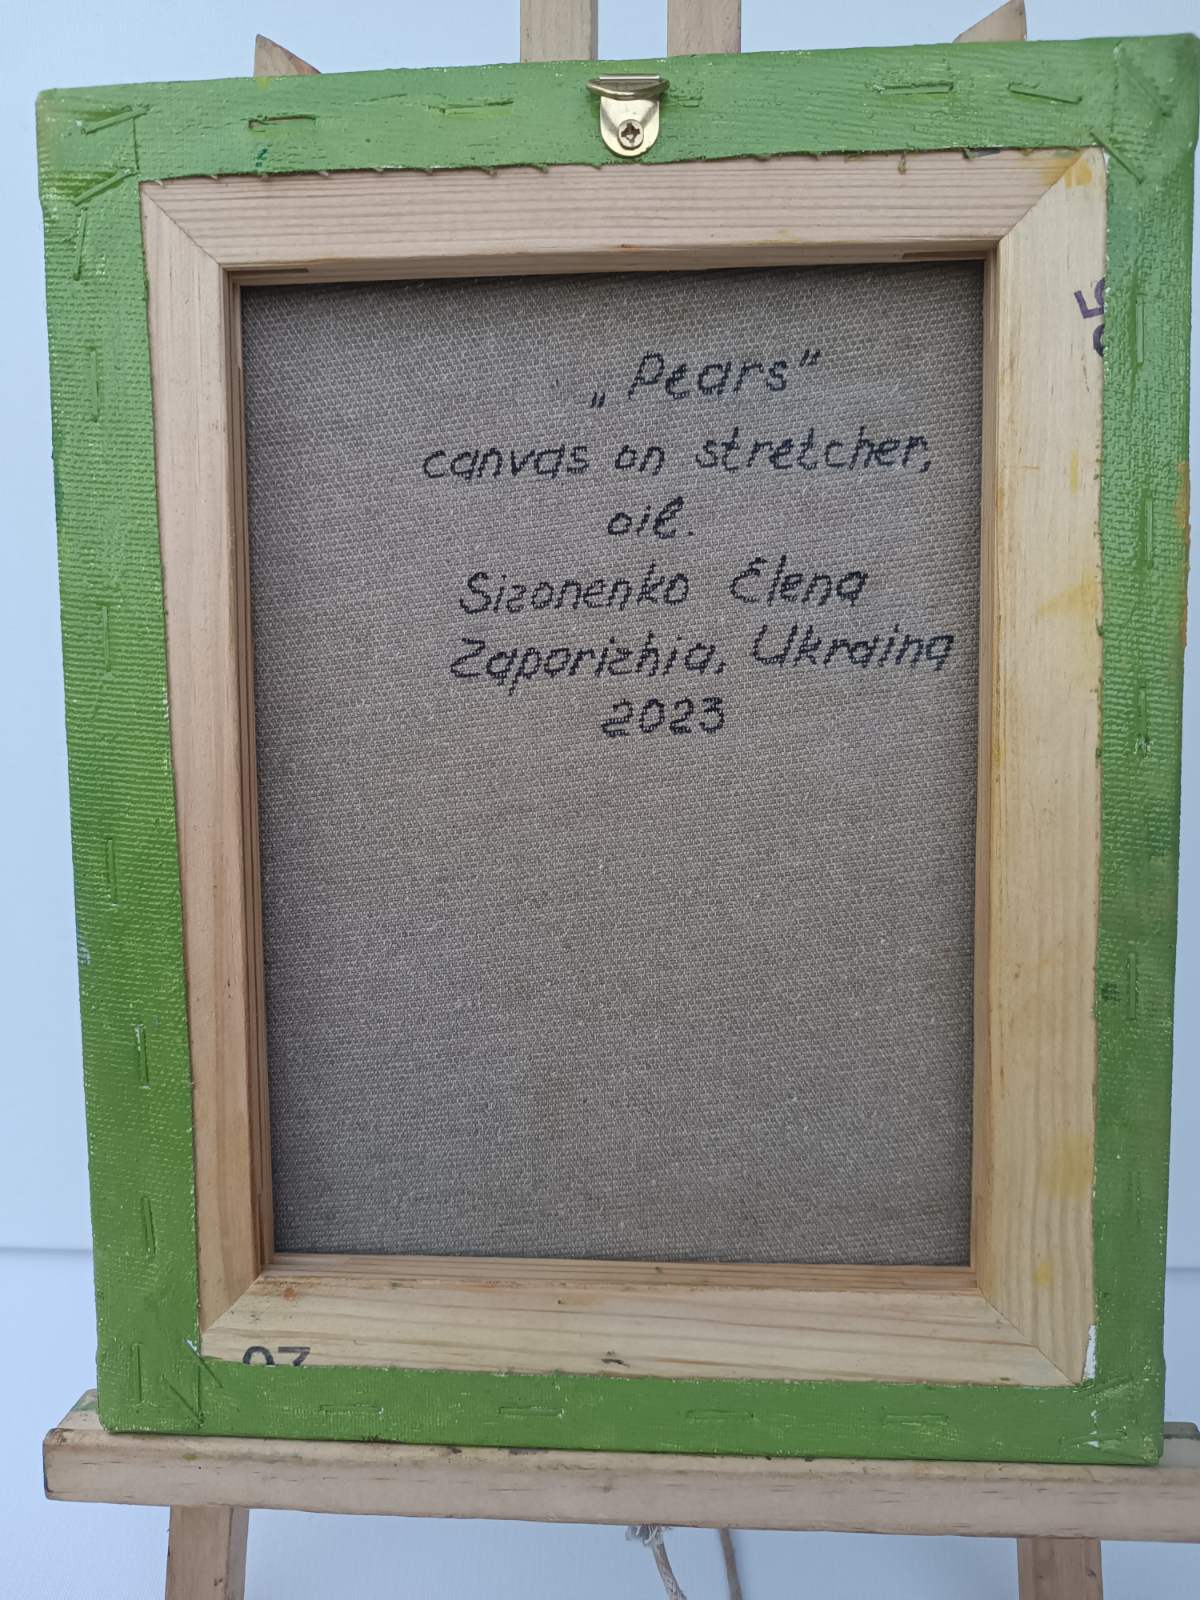 „Pears“
canvas on stretcher,
oil.
Sizonenko Elena
Zaporizhia, Ukraina
2023